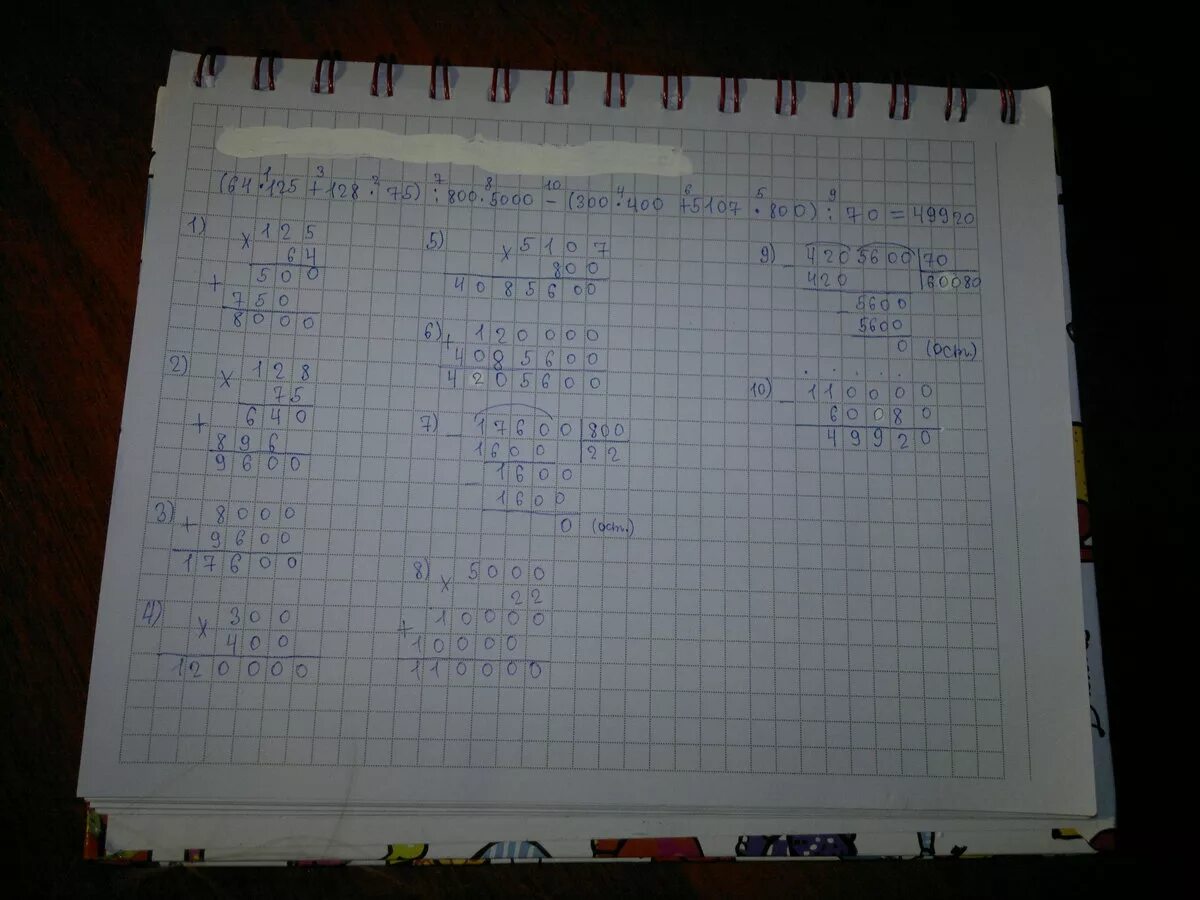 1 3 2 7 8 10 4 6 5 9
(64·125+128·75):800·5000-(300·400+5107·800):70=49920
1)
×125
64
+500
750
8000
2)
×128
75
+640
896
9600
3)
+8000
9600
17600
4)
×300
400
120000
5)
×5107
800
4085600
6)
+120000
4085600
4205600
7)
-17600|800
1600|22
-1600
1600
0 (ост.)
8)
×5000
22
+10000
10000
110000
9)
-4205600|70
420|60080
-5600
5600
0 (ост.)
10)
-110000
60080
49920